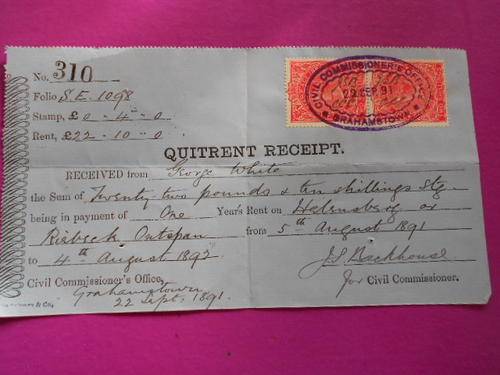 No. 310
Folio S.E. 1098
Stamp, £0 - 4 - 0
Rent, £22 - 10 - 0
CIVIL COMMISSIONER'S OFFICE
22 SEP 91
GRAHAMSTOWN
QUITRENT RECEIPT.
RECEIVED from George White
the Sum of Twenty two pounds & ten shillings Stg
being in payment of One Year's Rent on Helensberg or
Riebeck Outspan from 5th August 1891
to 4th August 1892
J S Backhouse
Civil Commissioner's Office, for Civil Commissioner.
Grahamstown
22 Sept. 1891.